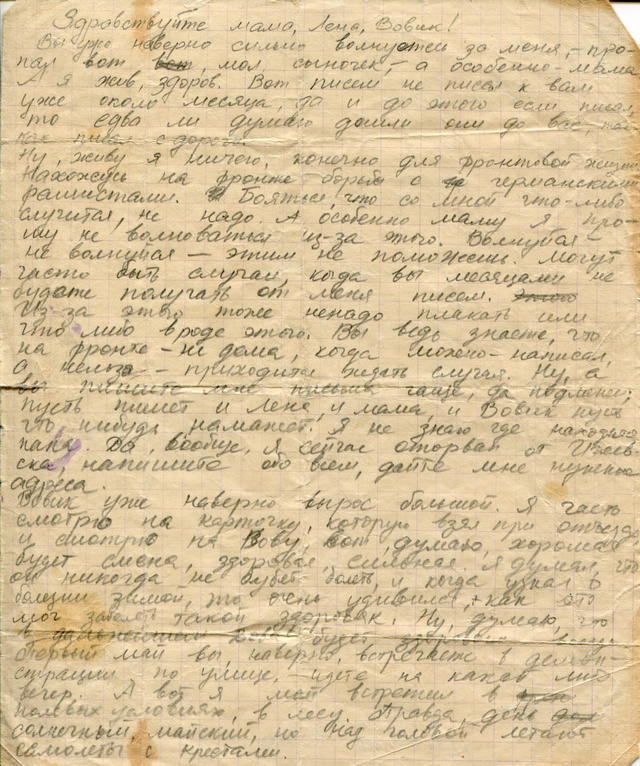 Здравствуйте мама, Лена, Вовик!
Вы уже наверно сильно волнуетесь за меня, – про-
пал вот мол, сыночек, – а особенно – мама
А я жив, здоров. Вот писем не писал к вам
уже около месяца, да и до этого если писал,
то едва ли думаю дошли они до вас,
как писал с дороги.
Ну, живу я ничего, конечно для фронтовой жизни
Нахожусь на фронте борьбы с германскими
фашистами. Бояться, что со мной что-либо
случится, не надо. А особенно маму я про-
шу не волноваться из-за этого. Волнуйся –
не волнуйся – этим не поможешь. Могут
часто быть случаи, когда вы месяцами не
будете получать от меня писем.
Из-за этого тоже ненадо плакать или
что либо вроде этого. Вы ведь знаете, что
на фронте – не дома, когда можно – написал,
а нельзя – приходится ждать случая. Ну, а
вы пишите мне письма чаще, да подлинней;
пусть пишет и Лена, и мама, и Вовик пусть
что нибудь намажет. Я не знаю где находится
папа. Да, вообще, я сейчас оторван от
напишите обо всем, дайте мне нужные
адреса.
Вовик уже наверно вырос большой. Я часто
смотрю на карточку, которую взял при отъезде
и смотрю на Вову, вот, думаю, хорошая
будет смена, здоровая, сильная. Я думал, что
он никогда не будет болеть, и когда узнал о
болезни зимой, то очень удивился, как это
мог заболеть такой здоровяк. Ну, думаю, что
в дальнейшем будет
Первый май вы, наверно, встречаете в демон-
страции по улице, – идете на какой либо
вечер. А вот я май встретил в
полевых условиях, в лесу. Правда, день
солнечный, майский, но над головой летают
самолеты с крестами.